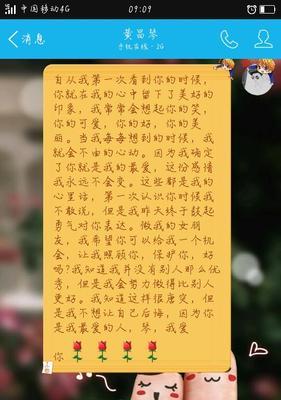 中国移动4G
09:09
消息
黄昌琴
手机在线 - 2G
自从我第一次看到你的时候，
你就在我的心中留下了美好的
印象，我常常会想起你的笑，
你的可爱，你的好，你的美
丽。当我每每想到的时候，我
就会不由的心动。因为我确定
了你就是我的最爱，这份感情
我永远不会变。这些都是我的
心里话，第一次认识你时候我
不敢说，但是我昨天终于鼓起
勇气对你表达。做我的女朋
友，我希望你可以给我一个机
会，让我照顾你，保护你，好
吗?我知道我并没有别人那么优
秀，但是我会努力做得比别人
更好。我知道这样很唐突，但
是我不想让自己后悔，因为你
是我最爱的人，琴，我爱
你